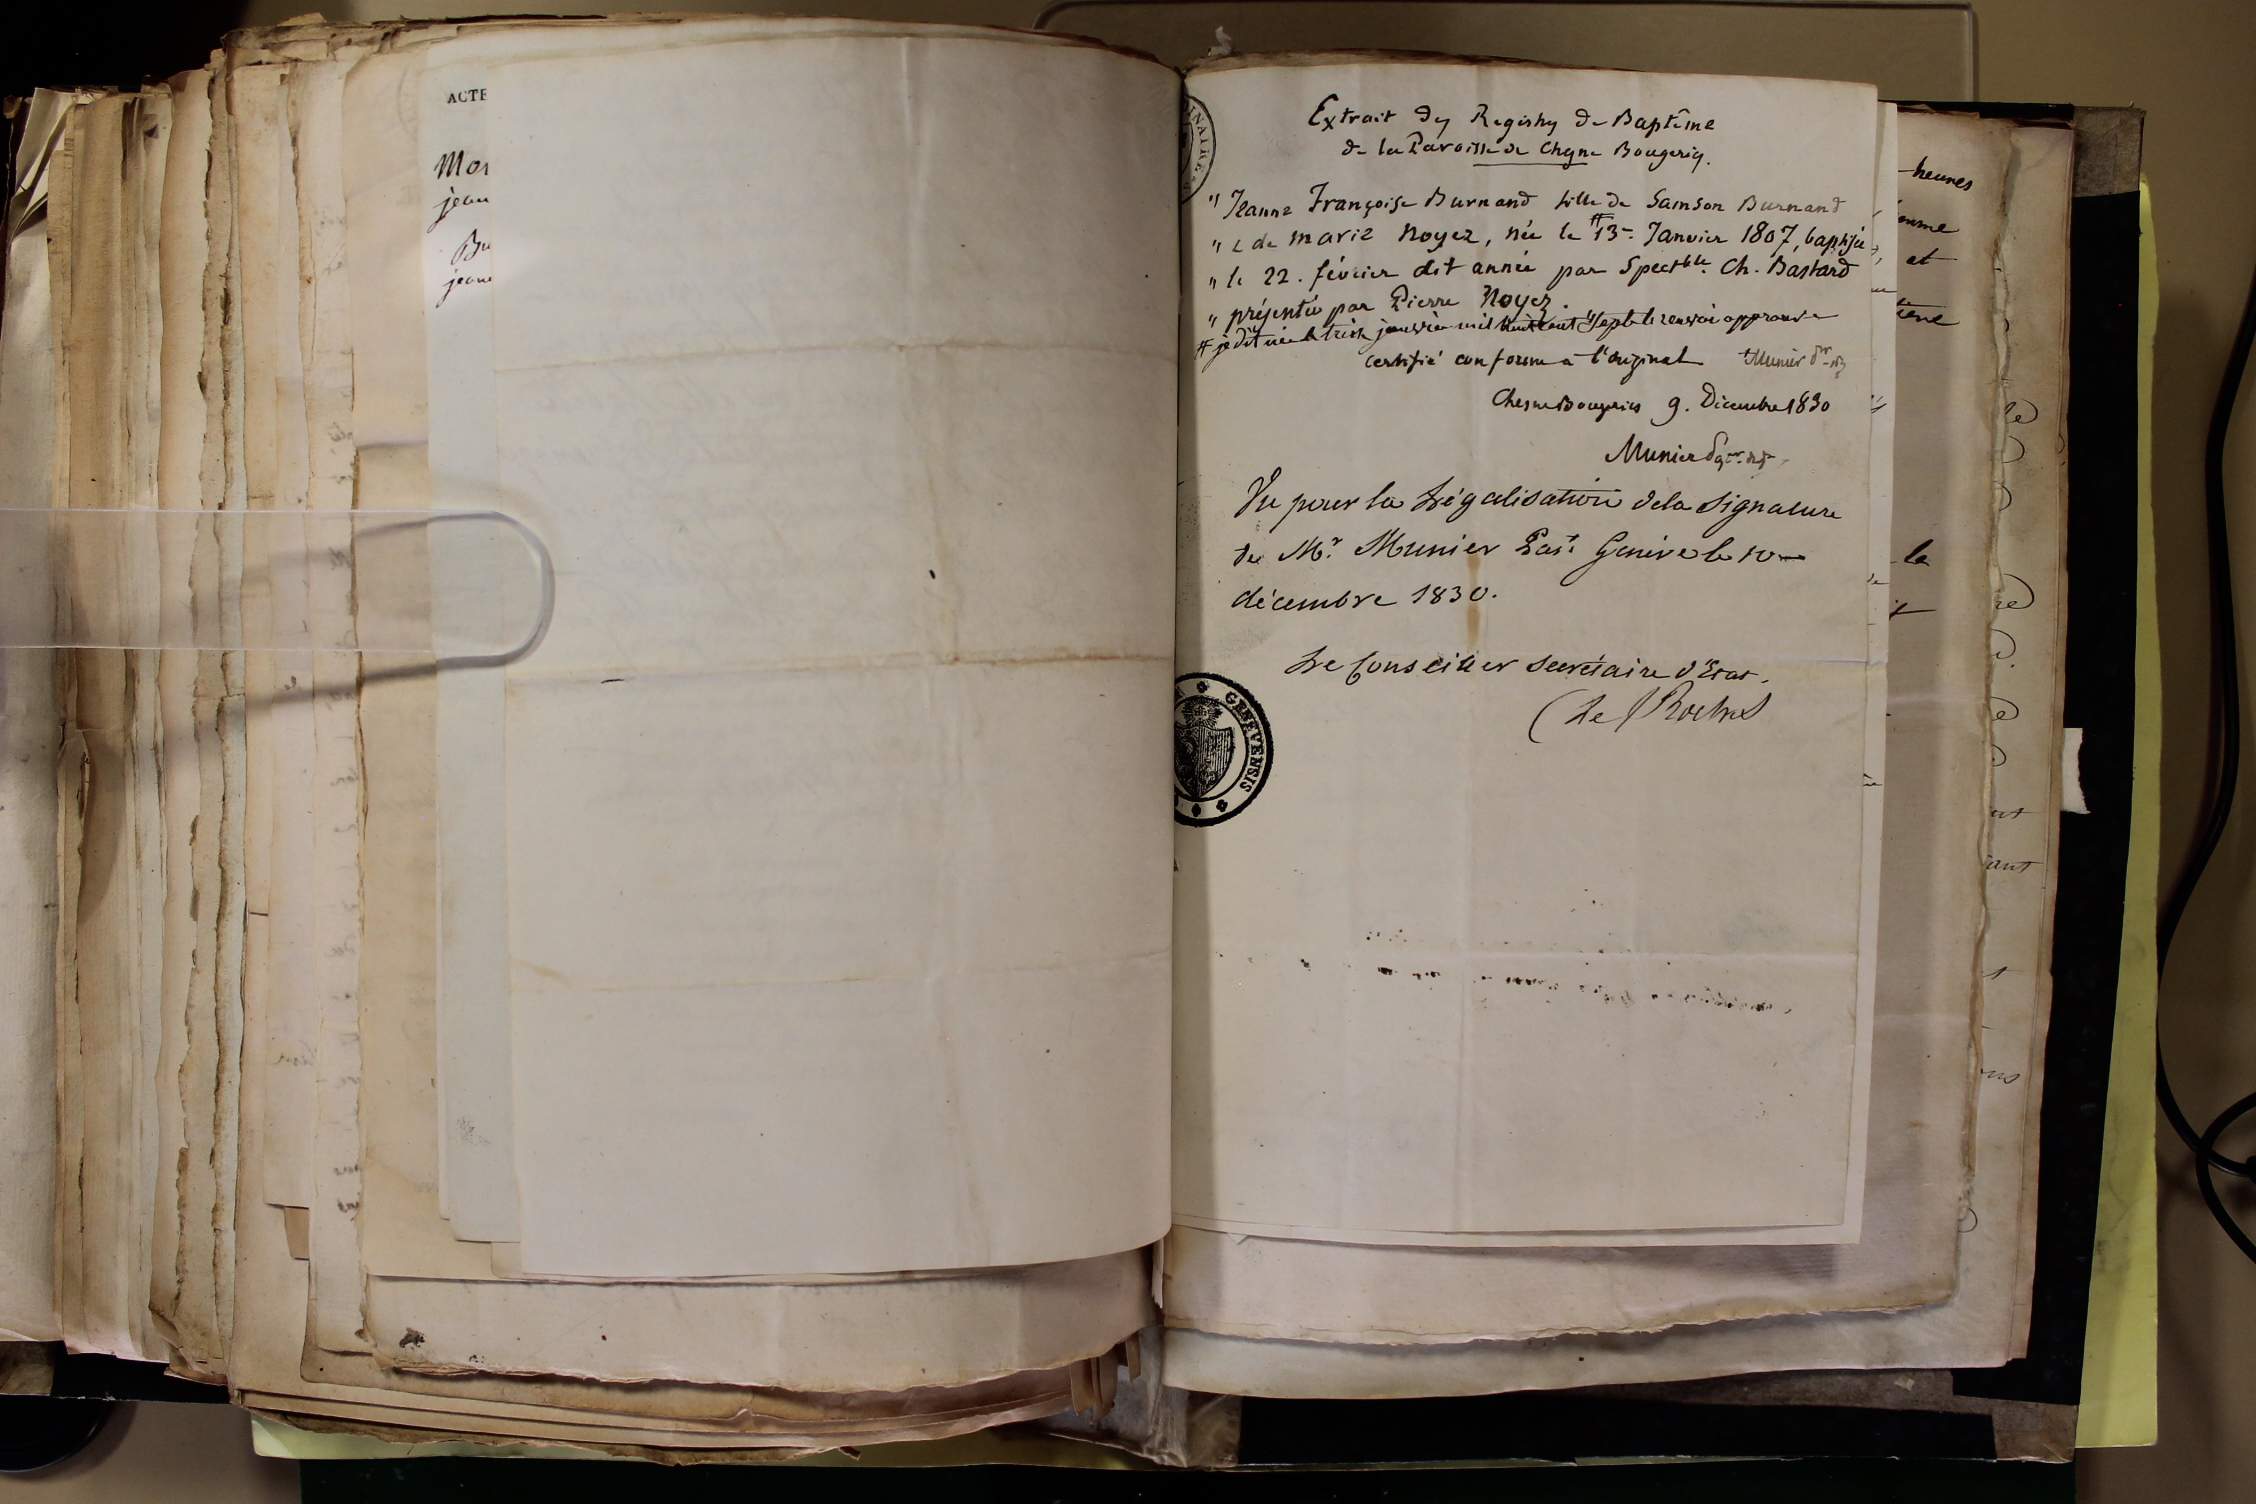 ACTE
Mon
jean
Bu
jeune
Extrait des Registres de Baptême
de la Paroisse de Chêne Bougeries.
" Jeanne Françoise Burnand fille de Samson Burnand
" & de Marie Noyez, née le # 13 - Janvier 1807, baptisée
" le 22. février dit année par Spectble. Ch. Bastard
" présentée par Pierre Noyez.
# je dit née le treize janvier mil huit cent sept le renvoi approuvé
certifié conforme à l'original Munier
Chesne Bougeries 9. Décembre 1830
Munier
Vu pour la Légalisation de la signature
de Mr. Munier Past. Genève le 10
décembre 1830.
Le Conseiller secrétaire d'Etat.
De Roches
GENEVENSIS
heures
et
la
ant